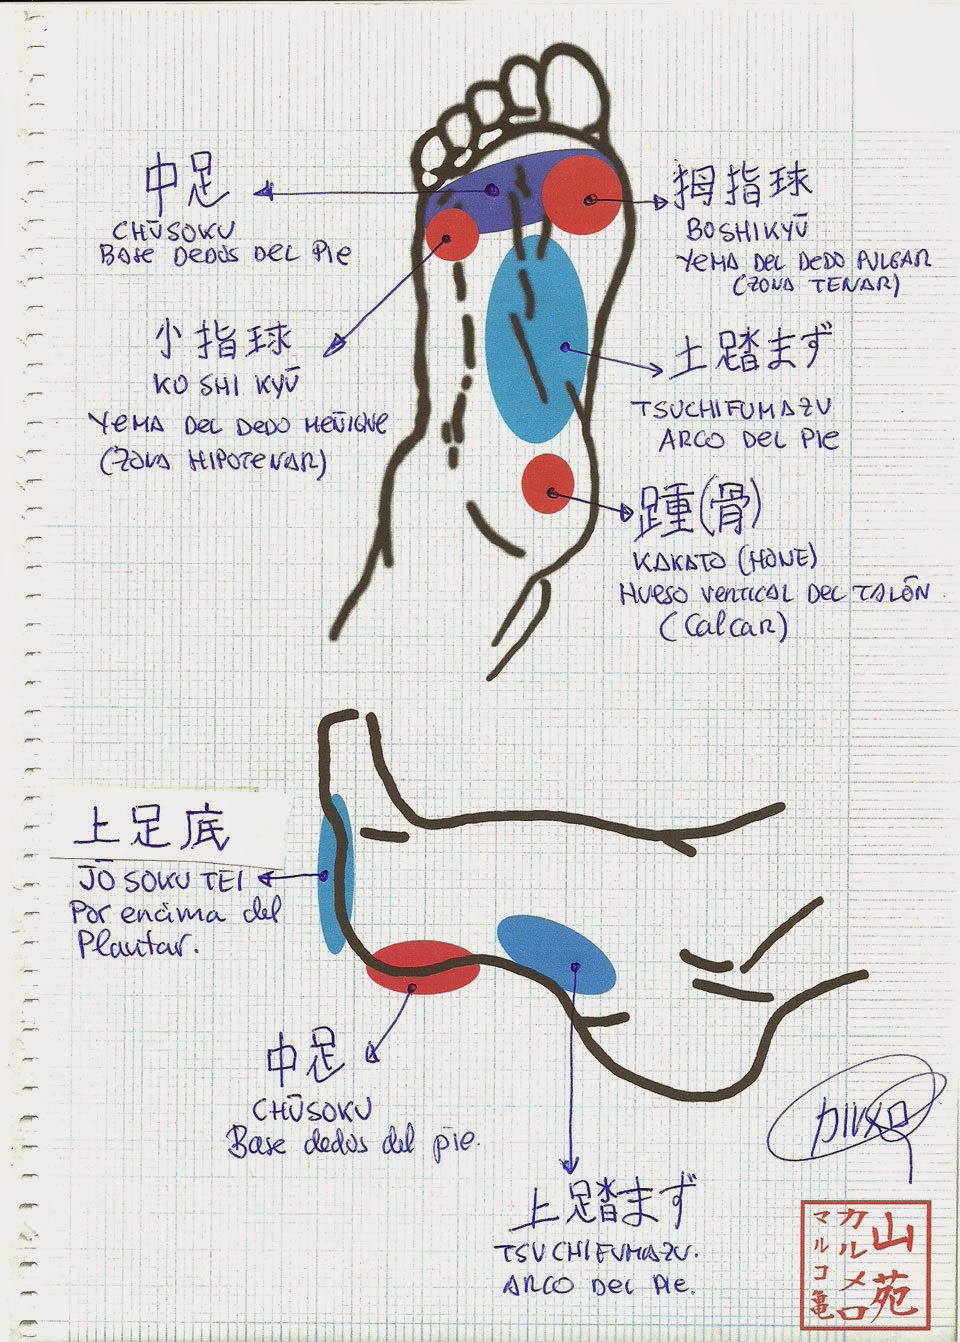 中足
CHŪSOKU
BASE DEDOS DEL PIE
拇指球
BOSHIKYŪ
YEMA DEL DEDO PULGAR
(ZONA TENAR)
小指球
KO SHI KYŪ
YEMA DEL DEDO MEÑIQUE
(ZONA HIPOTENAR)
土踏まず
TSUCHIFUMAZU
ARCO DEL PIE
踵(骨)
KAKATO (HONE)
HUESO VERTICAL DEL TALÓN
(CalCAR)
上足底
JŌ SOKU TEI
Por encima del
Plantar.
中足
CHŪSOKU
Base dedos del pie.
土踏まず
TSUCHIFUMAZU.
ARCO DEL PIE.
カルメロ
山苑
カルメロ
マルコ亀